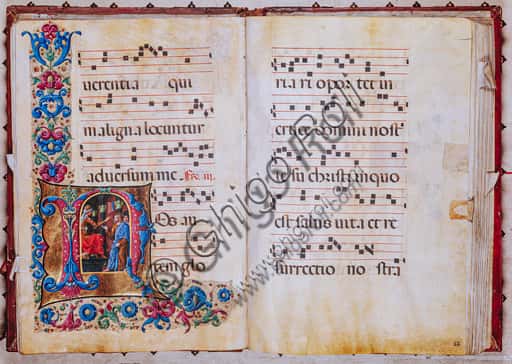 uerentia qui
maligna locuntur
aduersum me. Fre. iii.
Os au
tem glo
ria ri oportet in
cruce domini nost
iesu christi in quo
est salus uita et re
surrectio nostra
Ghigo Roli